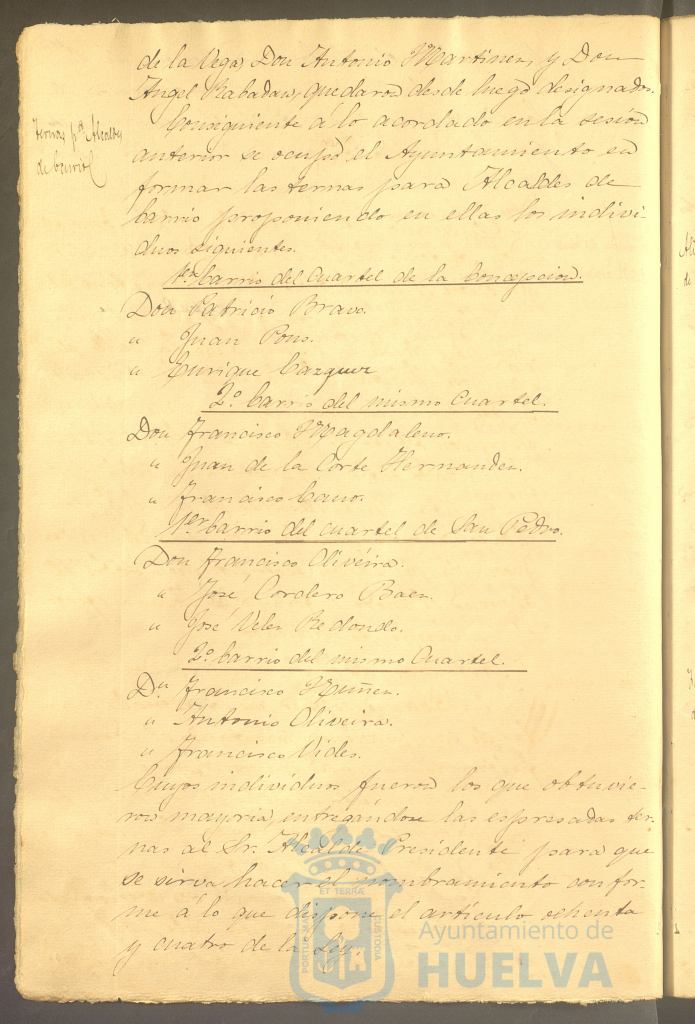 de la Vega, Don Antonio Martinez, y Don
Angel Rabadan, quedaron desde luego designados.
Ternas pª Alcaldes
de barrio
Consiguiente á lo acordado en la sesión
anterior se ocupó el Ayuntamiento en
formar las ternas para Alcaldes de
barrio proponiendo en ellas los indivi-
duos siguientes.
1er barrio del Cuartel de la Concepcion.
Don Patricio Bravo.
" Juan Pons.
" Enrique Cazquez
2º barrio del mismo Cuartel.
Don Francisco Magdaleno.
" Juan de la Corte Hernandez.
" Francisco Cano.
1er barrio del cuartel de San Pedro.
Don Francisco Oliveira.
" José Cordero Baez.
" José Velez Redondo.
2º barrio del mismo Cuartel.
Dn Francisco Nuñez.
" Antonio Oliveira.
" Francisco Vides.
Cuyos individuos fueron los que obtuvie-
ron mayoria, entregándose las espresadas ter-
nas al Sr. Alcalde Presidente para que
se sirva hacer el nombramiento confor-
me á lo que dispone el artículo ochenta
y cuatro de la Ley.
PORTUS MARIS
ET TERRÆ
CUSTODIA
Ayuntamiento de
HUELVA